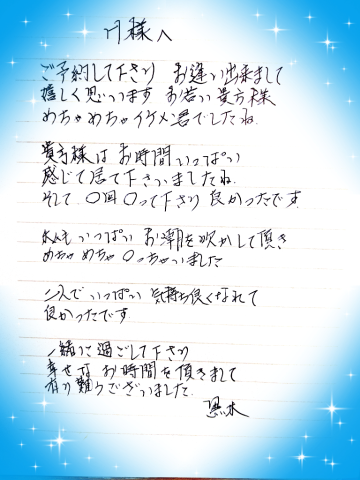 様へ
ご予約して下さり お逢い出来まして
嬉しく思っています お若い貴方様
めちゃめちゃイケメン君でしたね
貴方様はお時間いっぱい
感じて居て下さいましたね
そして〇回〇って下さり 良かったです
私もいっぱい お潮を吹かして頂き
めちゃめちゃ〇っちゃいました
二人でいっぱい 気持ち良くなれて
良かったです
一緒に過ごして下さり
幸せな お時間を頂きまして
有り難うございました
黒木